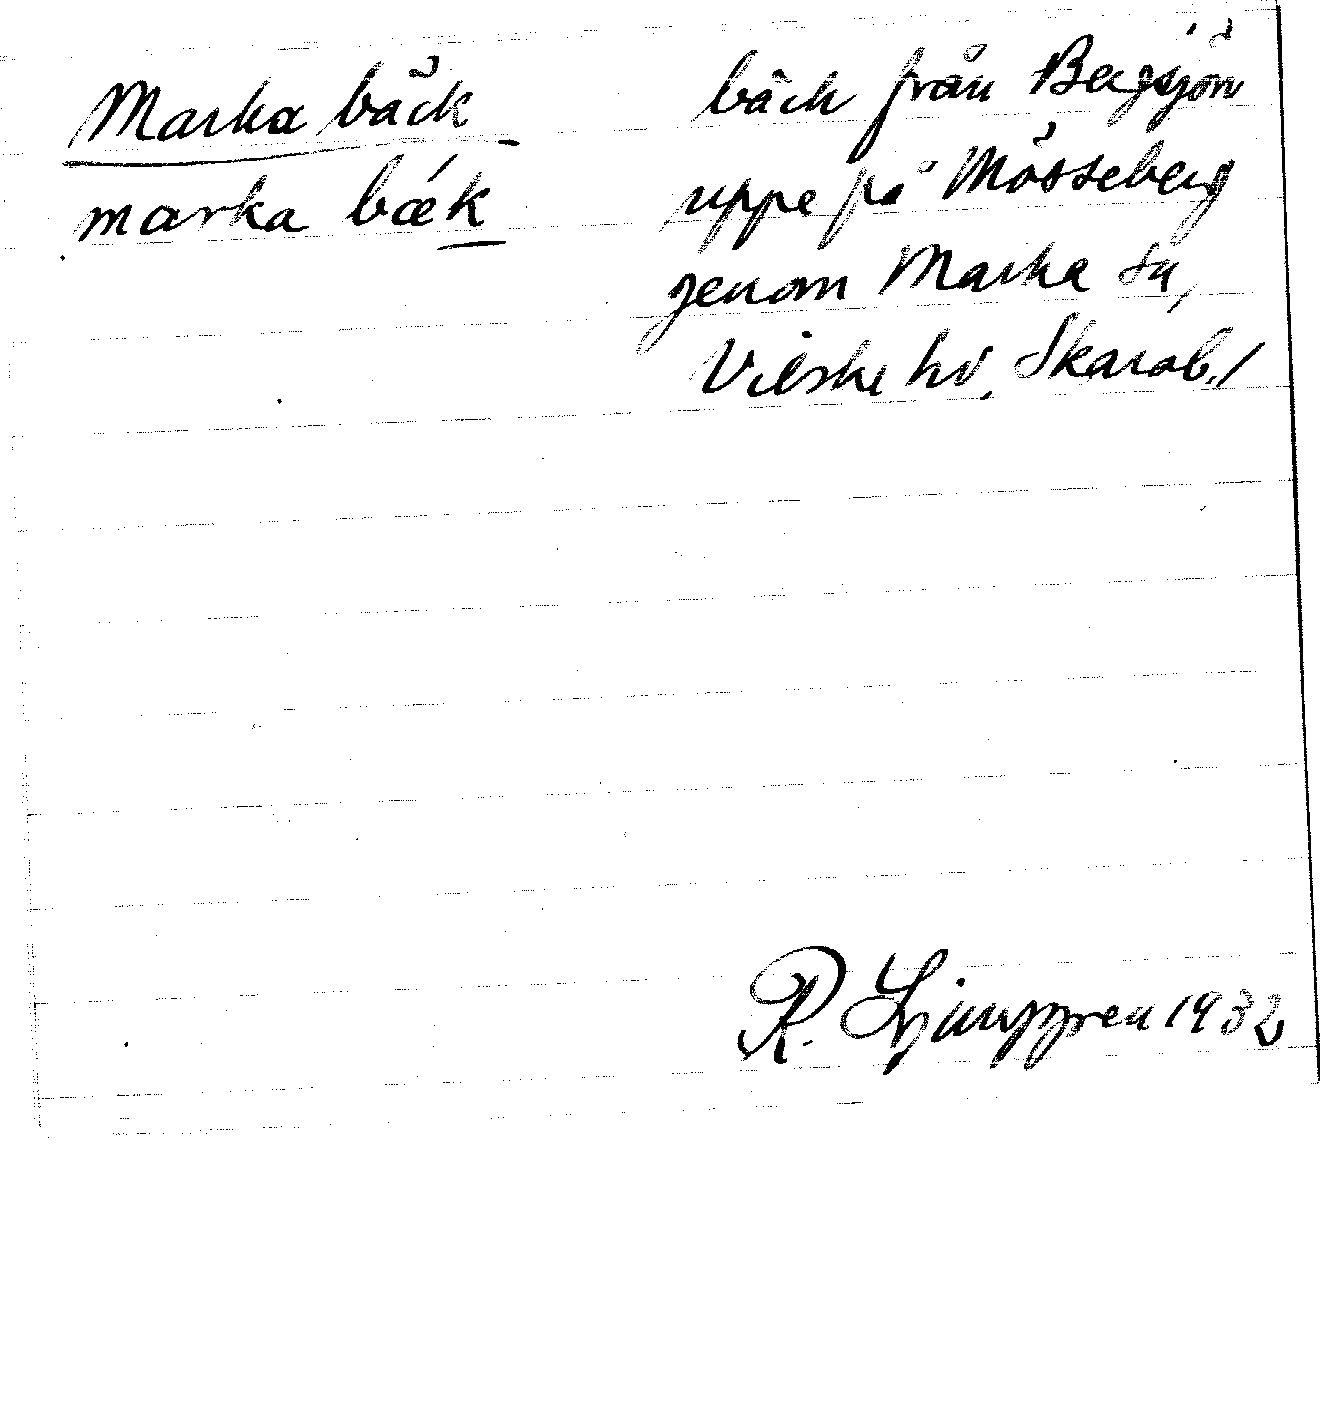 Marka bäck
marka bǽk
bäck från Bergsjön
uppe på Mösseberg
genom Marka sn,
Vilske hd. Skarab./
R. Ljunggren 1932